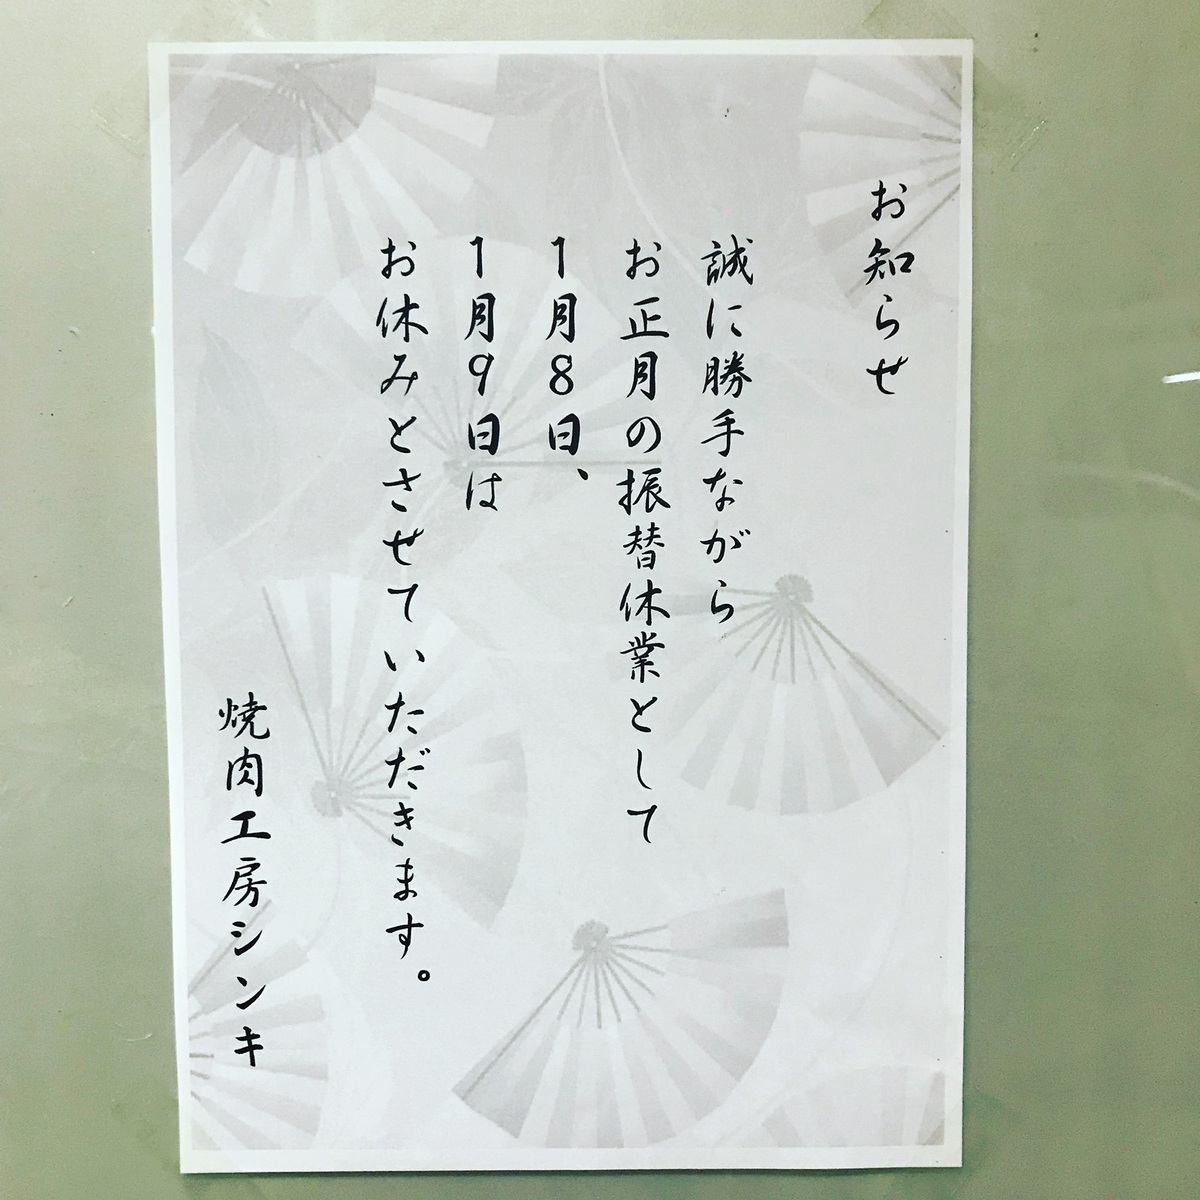 お知らせ
誠に勝手ながら
お正月の振替休業として
1月8日、
1月9日は
お休みとさせていただきます。
焼肉工房シンキ